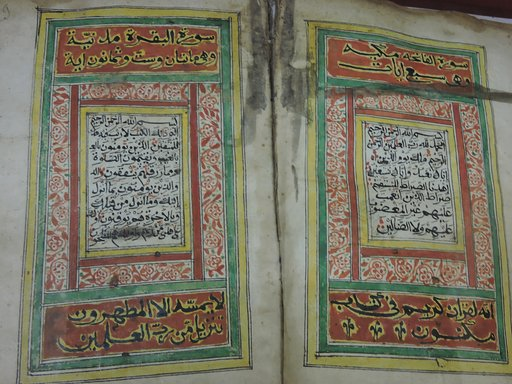 سورة الفاتحة مكية
وهي سبع ايات
بسم الله الرحمن الرحيم
الحمد لله رب العلمين الرحمن الرحيم
ملك يوم الدين
اياك نعبد واياك نستعين
اهدنا الصراط المستقيم
صراط الذين انعمت
عليهم غير المغضوب
عليهم ولا الضالين
انه لقران كريم في كتب
مكنون
سورة البقرة مدنية
وهي مائتان وست وثمانون اية
بسم الله الرحمن الرحيم
الم ذلك الكتب لا ريب
فيه هدى للمتقين الذين يؤمنون
بالغيب ويقيمون الصلوة
ومما رزقنهم ينفقون
والذين يؤمنون بما انزل
اليك وما انزل من قبلك
وبالاخرة هم يوقنون
لا يمسه الا المطهرون
تنزيل من رب العلمين